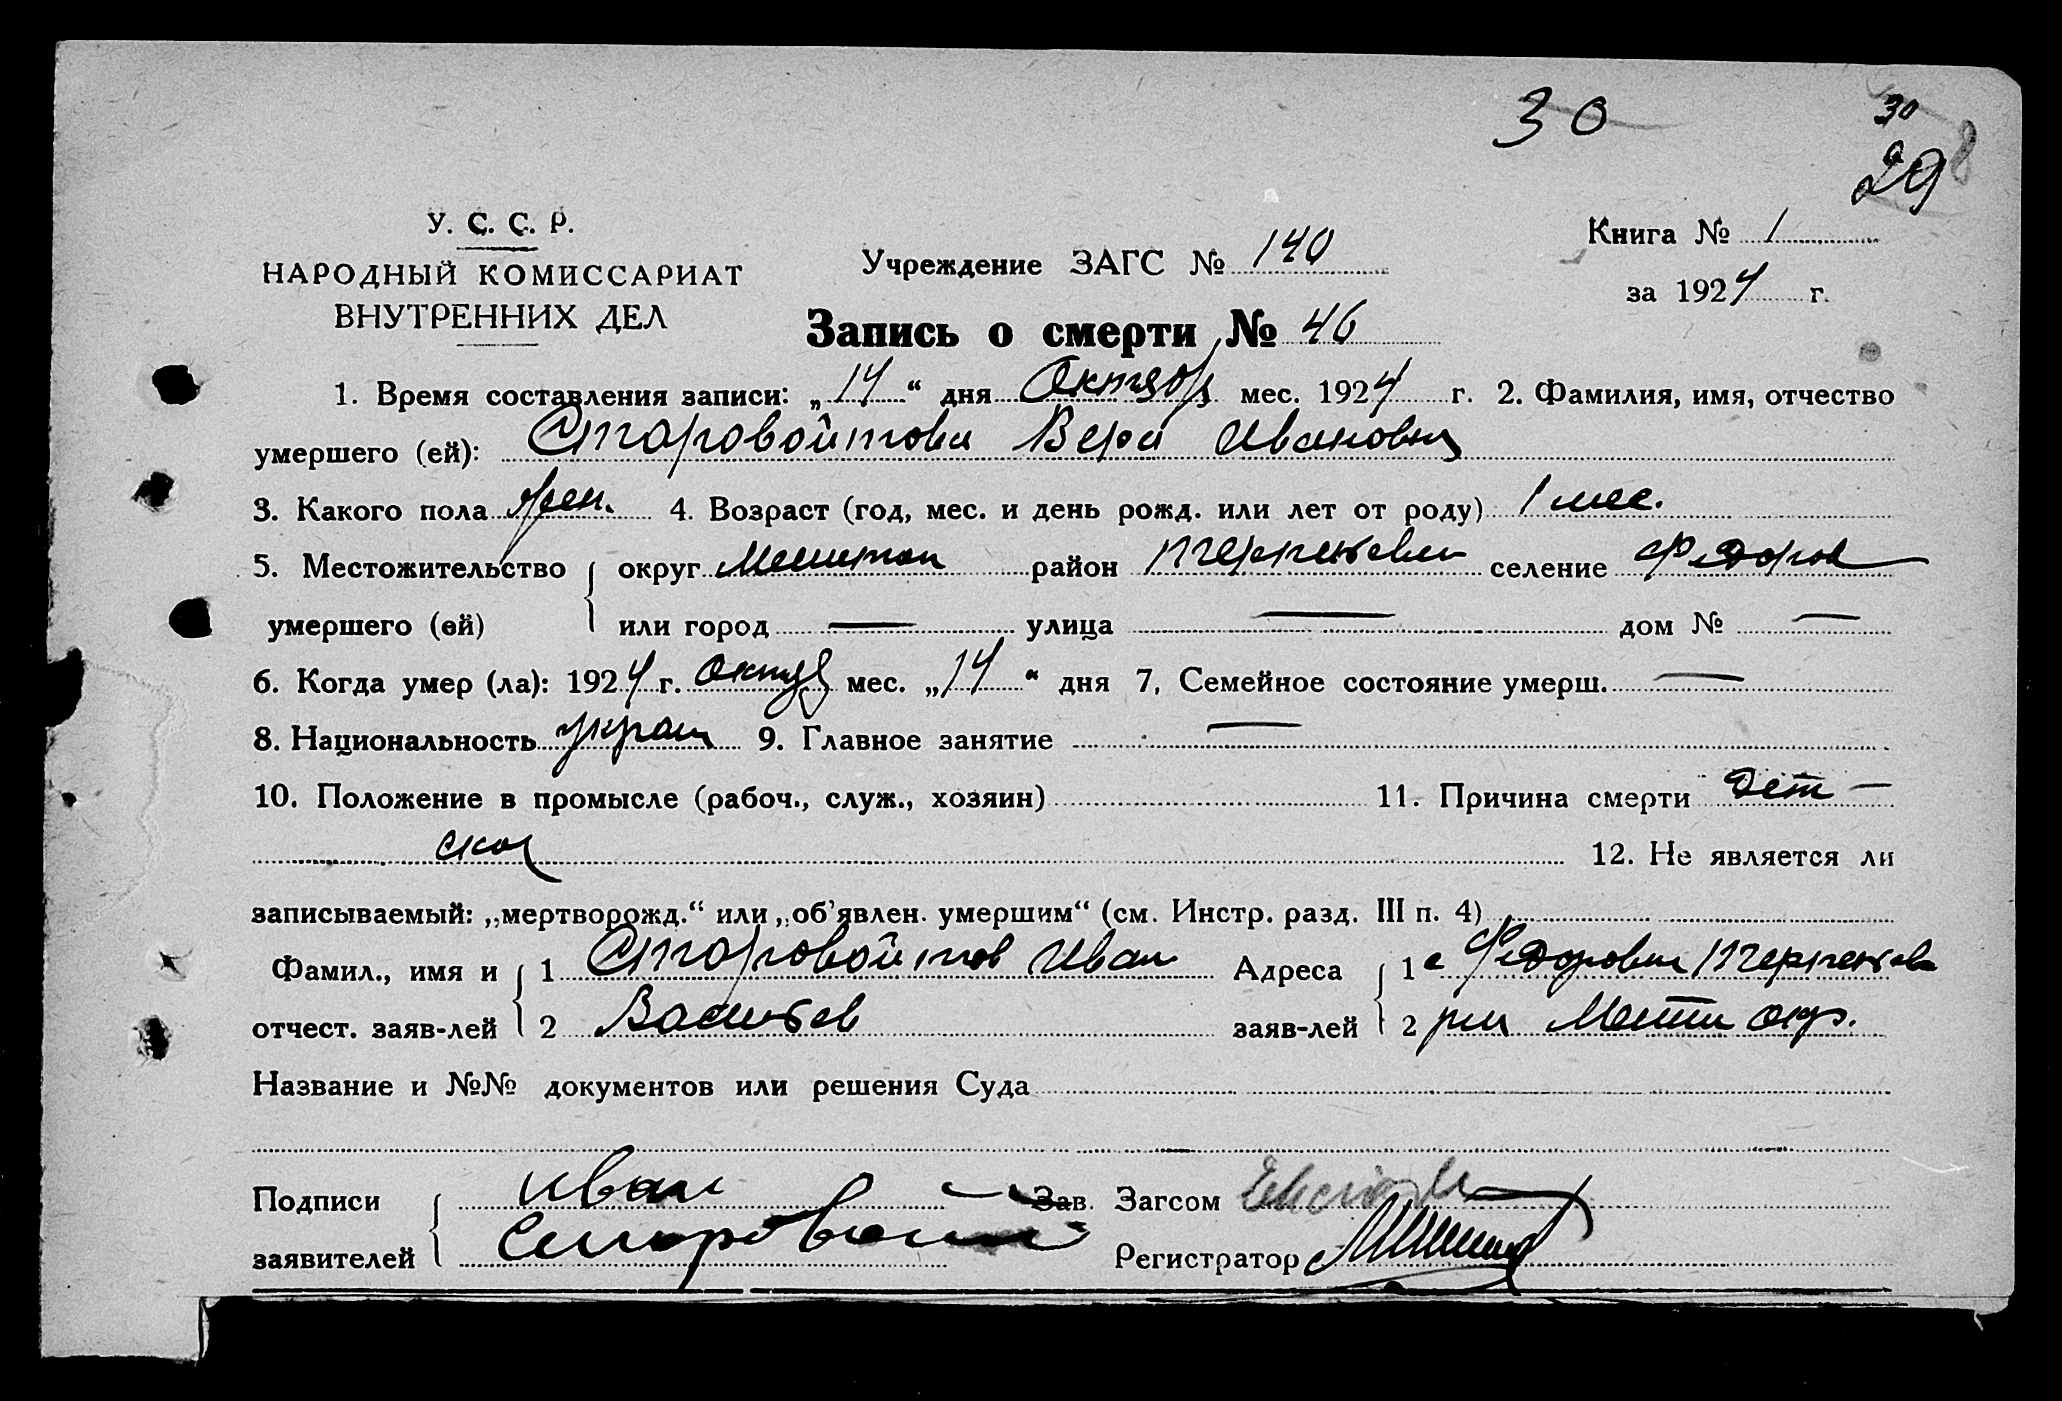 30
30
29
У. С. С. Р.
НАРОДНЫЙ КОМИССАРИАТ
ВНУТРЕННИХ ДЕЛ
Учреждение ЗАГС № 140
Книга № 1
за 1924 г.
Запись о смерти № 46
1. Время составления записи: „14“ дня Октябр мес. 1924 г. 2. Фамилия, имя, отчество
умершего (ей): Старовойтова Вера Ивановна
3. Какого пола жен. 4. Возраст (год, мес. и день рожд. или лет от роду) 1 мес.
5. Местожительство округ район селение Федоров
умершего (ей) или город — улица — дом № —
6. Когда умер (ла): 1924 г. октяб мес. „14“ дня 7. Семейное состояние умерш. —
8. Национальность украин 9. Главное занятие —
10. Положение в промысле (рабоч., служ., хозяин) 11. Причина смерти Дет-
ская 12. Не является ли
записываемый: „мертворожд.“ или „об'явлен. умершим“ (см. Инстр. разд. III п. 4)
Фамил., имя и 1 Старовойтов Иван Адреса 1 с Федоровка
отчест. заяв-лей 2 Васильев заяв-лей 2 окр.
Название и №№ документов или решения Суда
Подписи Иван Зав. Загсом
заявителей Регистратор